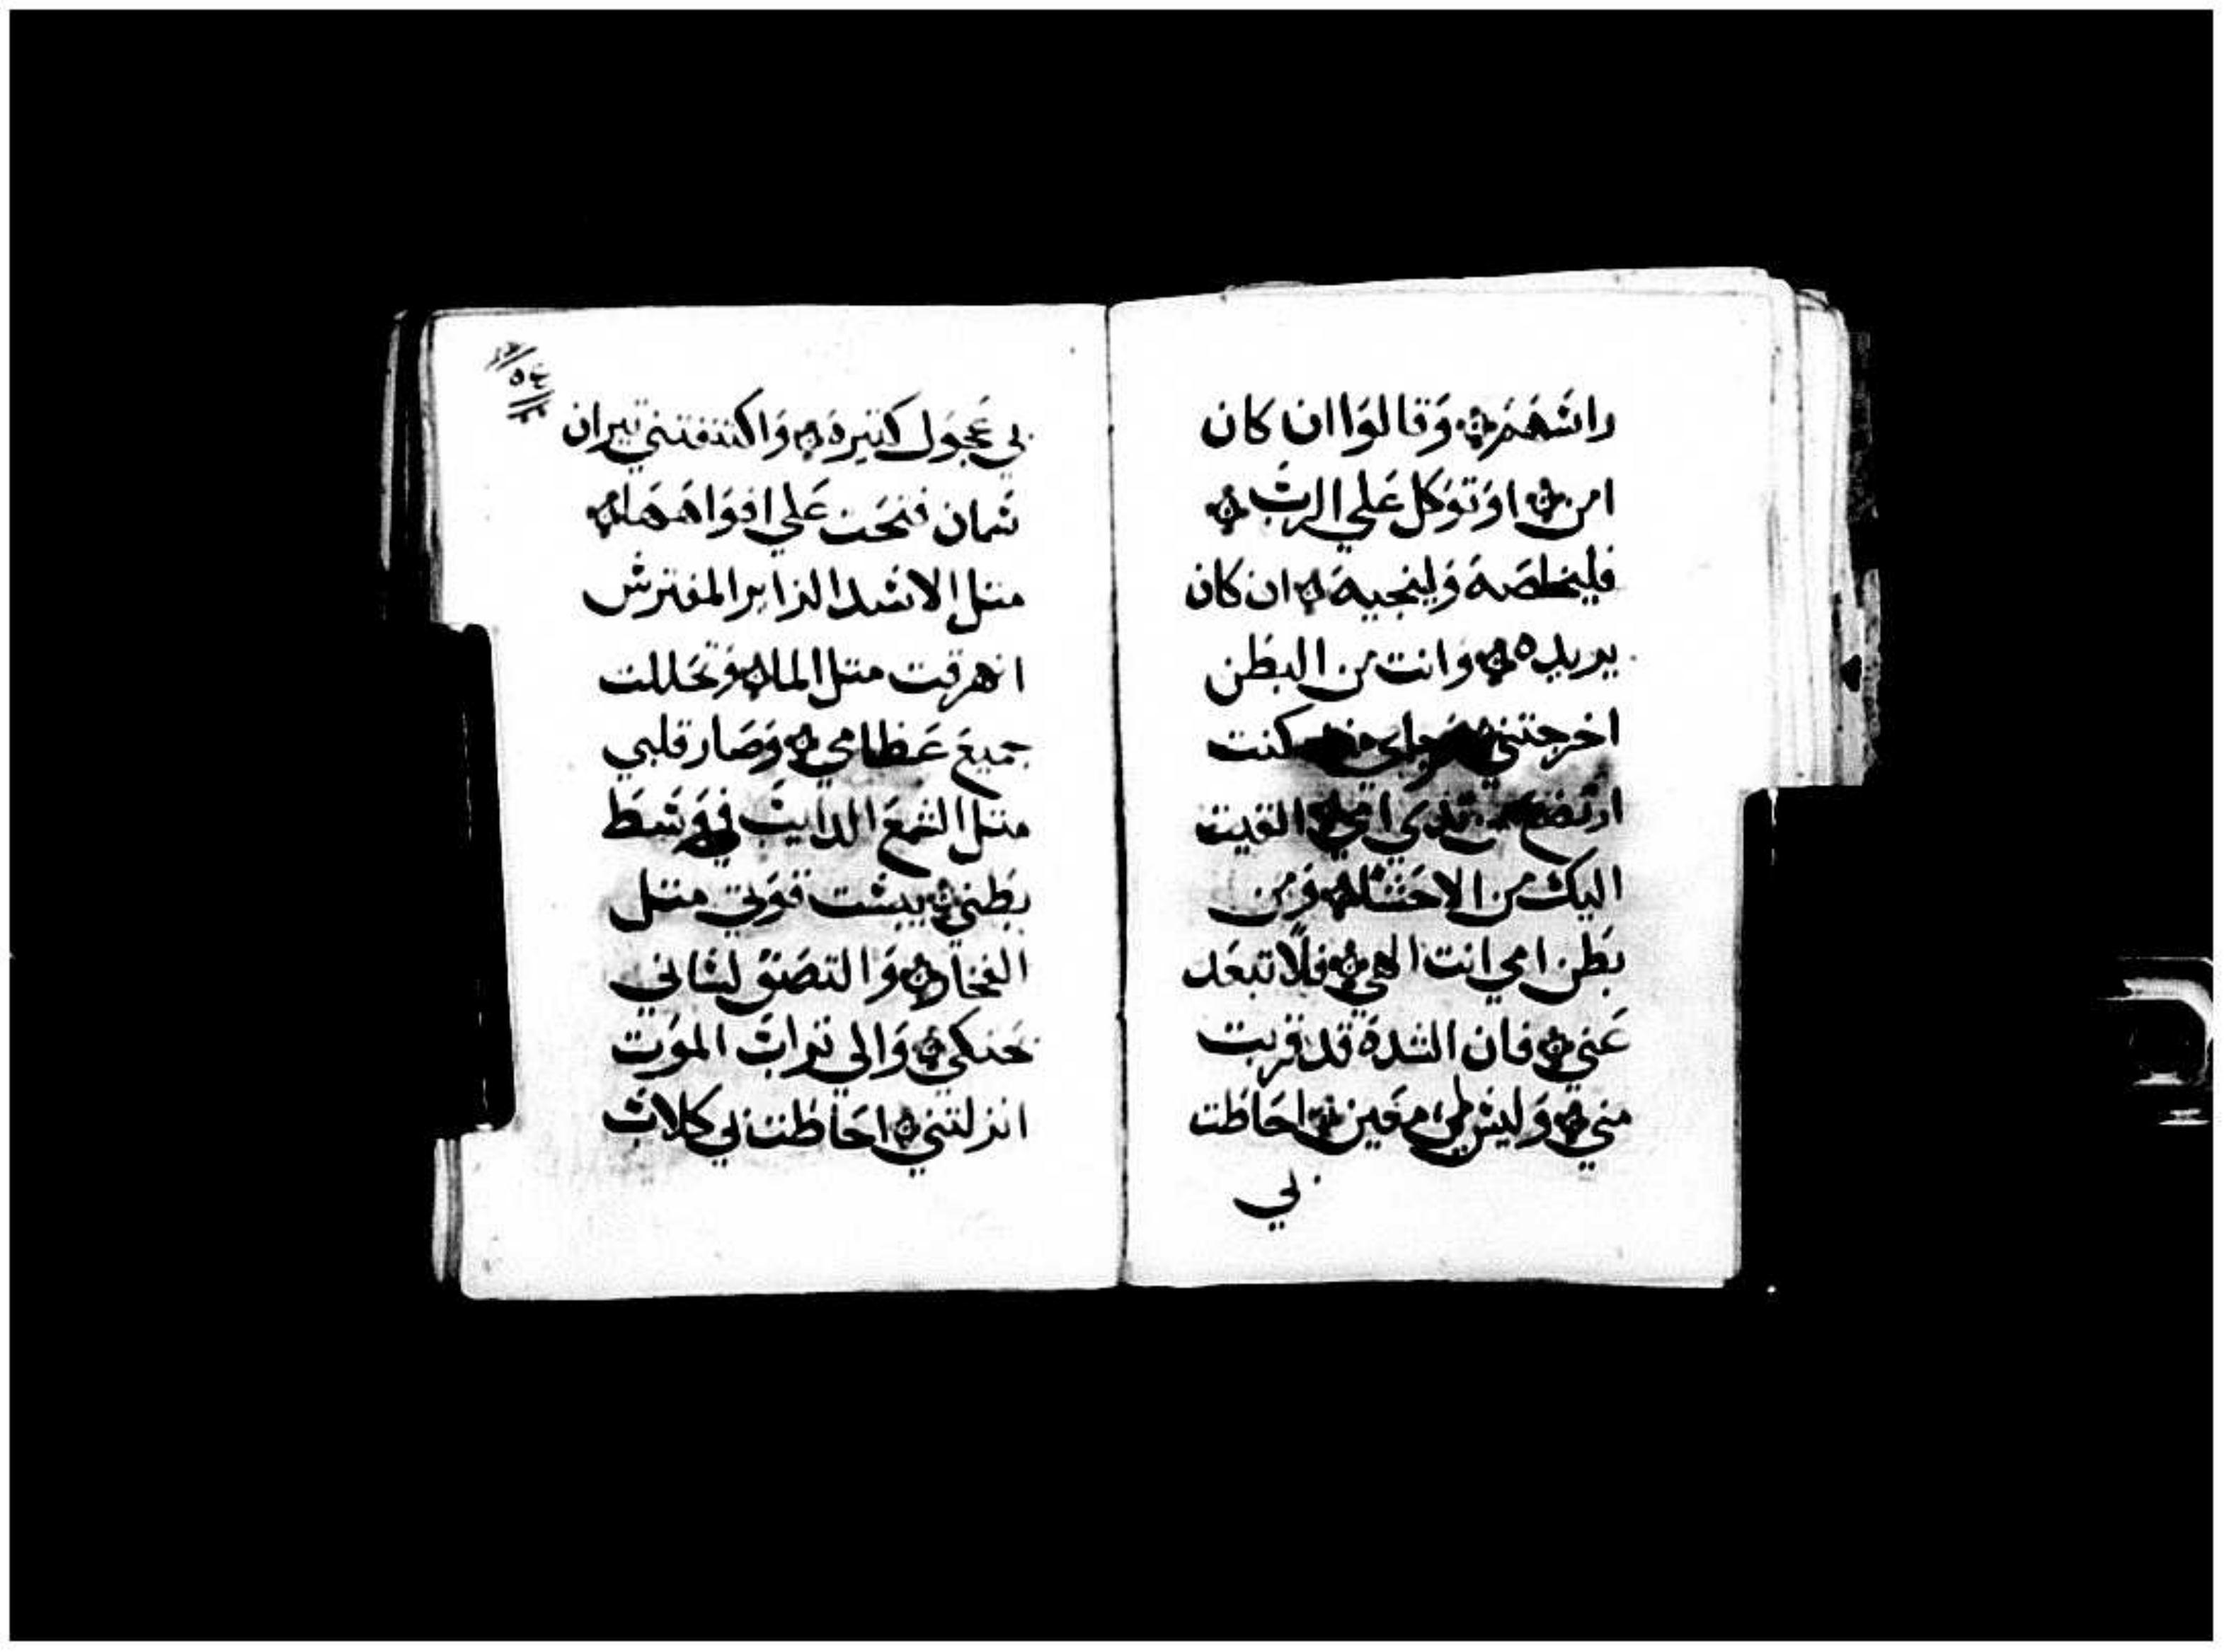 راسهم وقالوا ان كان
امن او توكل علي الرب
فليخلصه ولينجيه ان كان
يريده وانت من البطن
اخرجتني كنت
ارتضع من ثدي امي القيت
اليك من الاحشا ومن
بطن امي انت الهي فلا تبعد
عني فان الشدة قد قربت
مني وليس لي معين احاطت
بي
بي عجول كثيره واكتنفتني تيران
سمان فتحت علي افواهها
متل الاسد الزاير المفترس
انهرقت متل الما وتحللت
جميع عظامي وصار قلبي
متل الشمع الدايب في وسط
بطني يبست قوتي متل
الفخار والتصق لساني
بحنكي والي تراب الموت
انزلتني احاطت بي كلاب